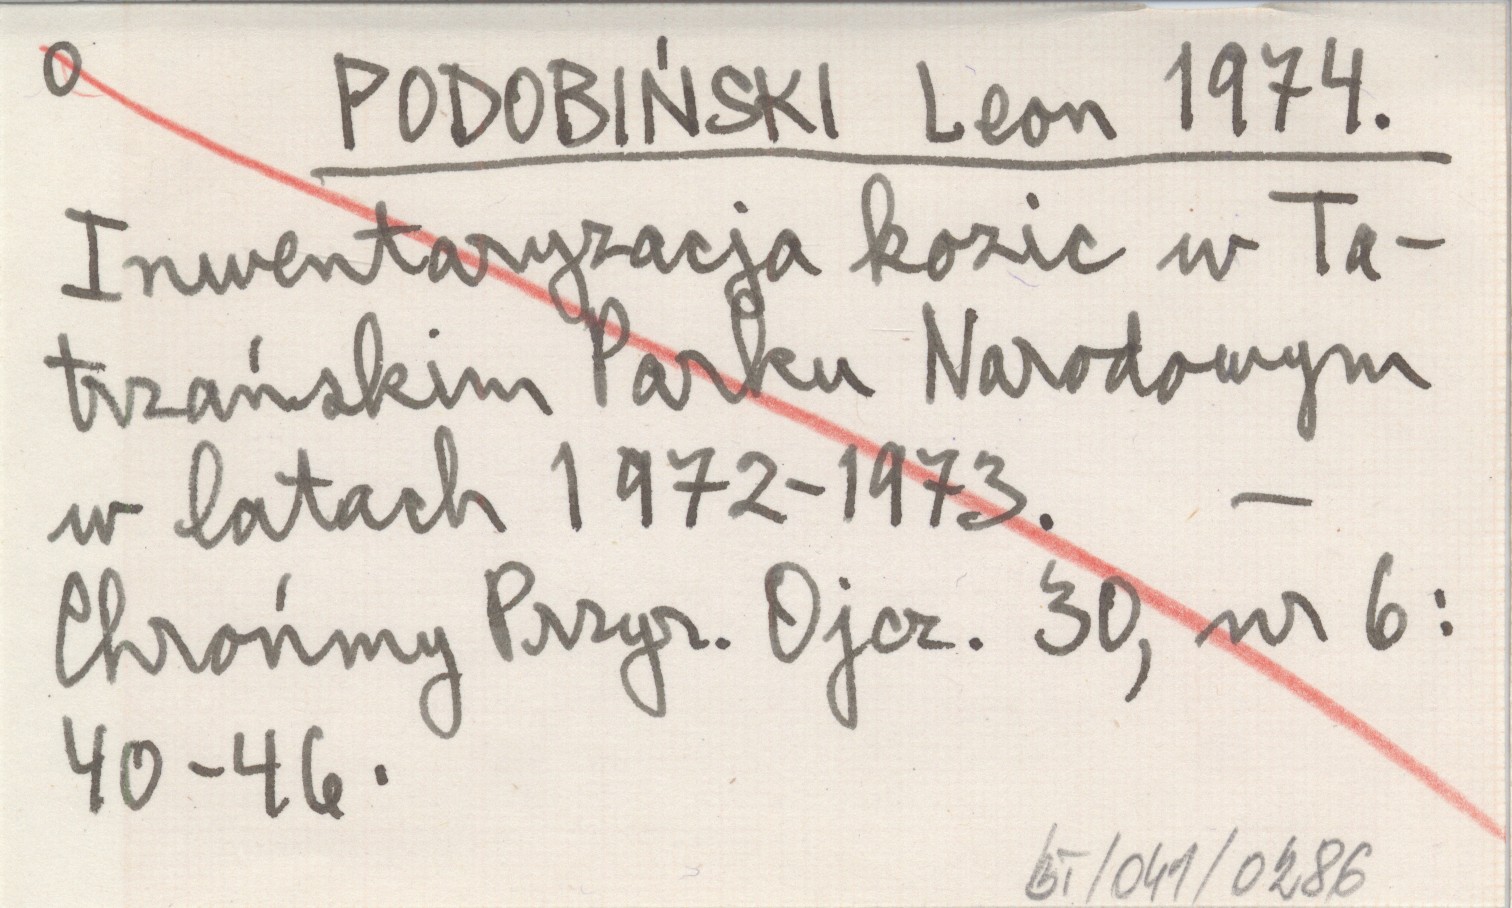 O PODOBIŃSKI Leon 1974.
Inwentaryzacja kozic w Ta-
trzańskim Parku Narodowym
w latach 1972-1973. —
Chrońmy Przyr. Ojcz. 30, nr 6:
40-46.
/041/0286